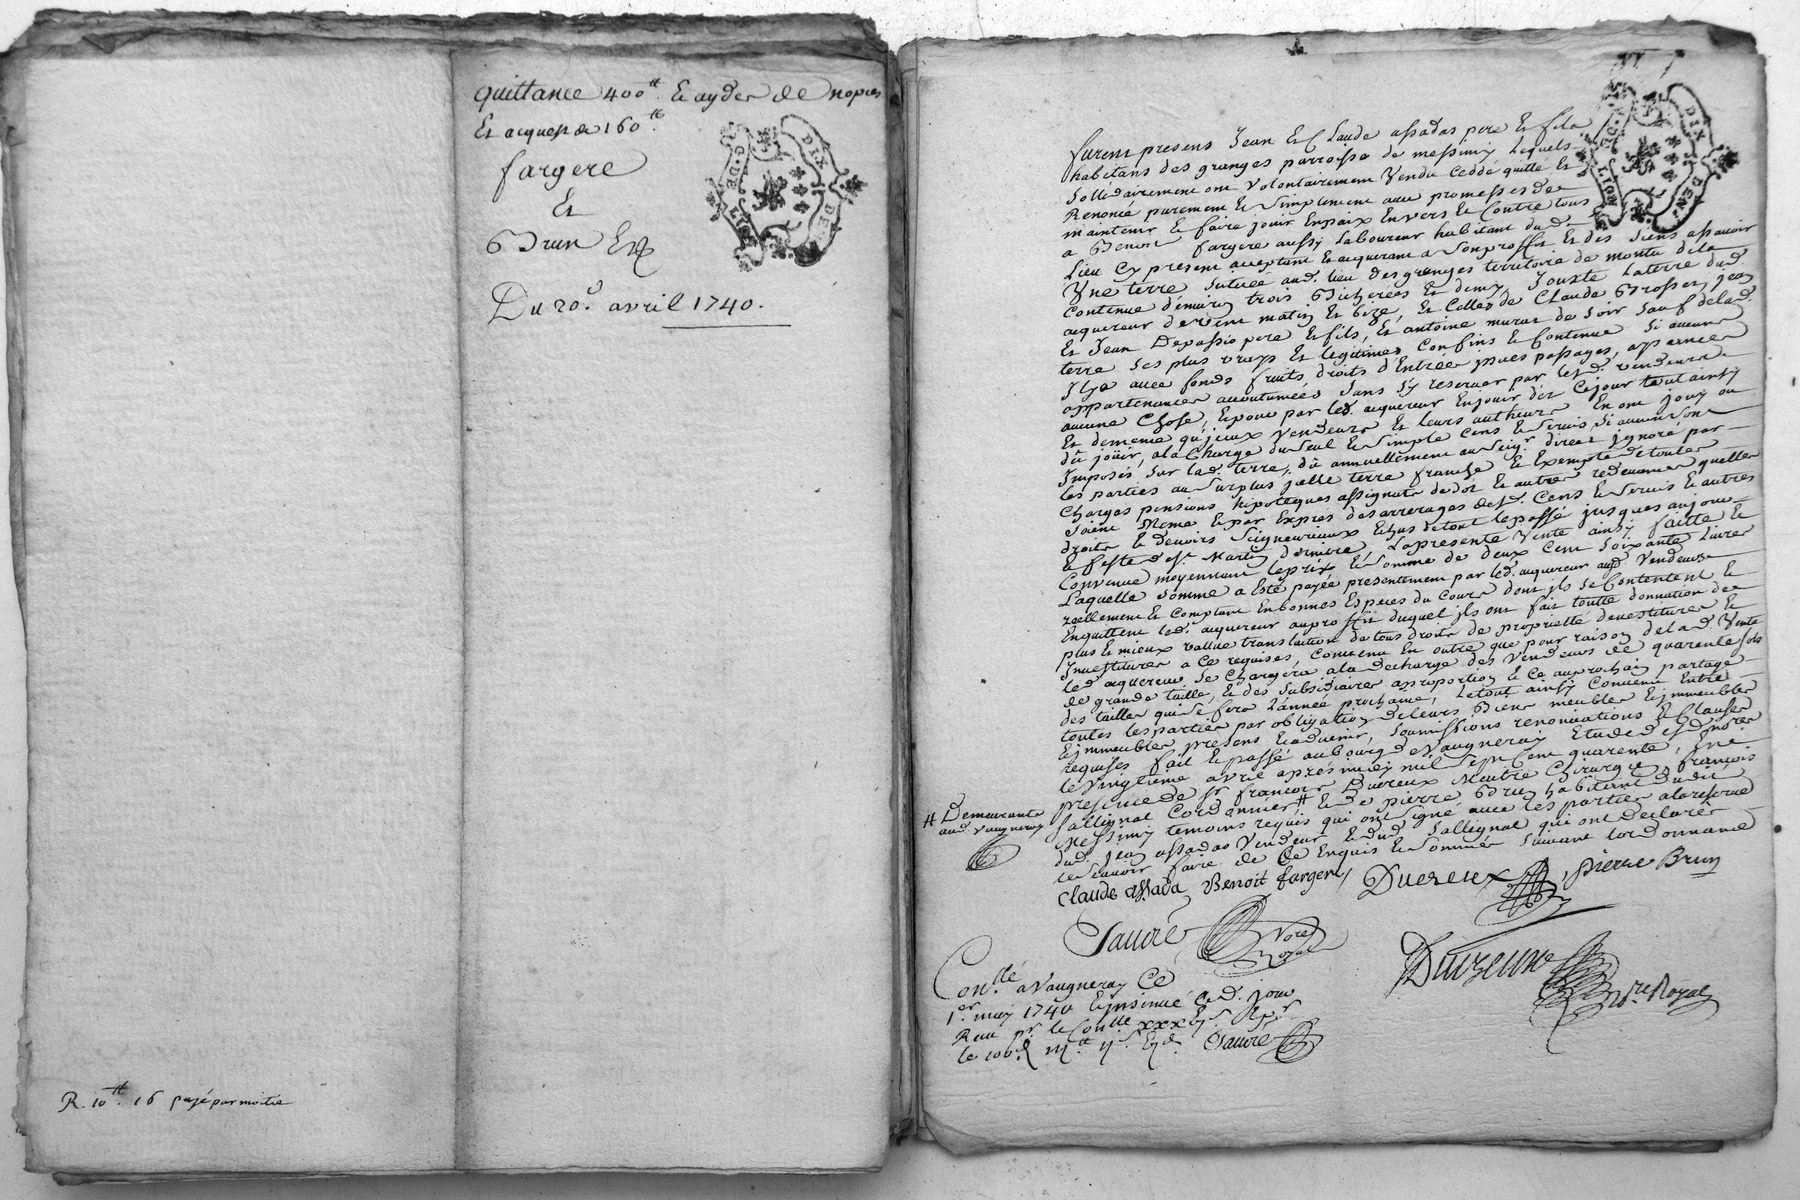 quittance 400ᵗᵗ. Et ayder de nopces
Et acquest de 160ᵗᵗ.
fargere
Et
Brun
Du 20ᵉ avril 1740.
R. 10ᵗᵗ. 16 payé par moitié
G. DE LYON
DIX DE
G. D. LYON
DIX DEN
furent presens Jean Et Claude assadas pere Et fils
habitans des granges parroisse de messimy Lequels
Sollidairement ont volontairement Vendu Ceddé quitté Et
Renoncé purement Et Simplement avec promesses de
maintenir Et faire jouir En paix Envers Et Contre tous
a Benoit fargere aussy Laboureur habitant dud.
Lieu Cy present acceptant Et acquerant a Son proffit Et des Siens assavoir
Une terre Scituée aud. lieu des granges territoire de
Contenue d'Environ trois Bicherées Et demy Jouxte La terre dud.
acquereur de vent matin Et bize, Et Celles de Claude Brossery, jean
Et Jean Depassio pere Et fils, Et antoine murat de Soir Sauf delad.
terre Ses plus vrays Et legitimes Confins Et Contenue Si aucuns
Il ya avec fonds fruits droits d'Entrée issues passages, apparnces
appartenances accoutumées Sans S'y reserver par lesd. vendeurs
aucune Chose, Et pour par led. acquereur En jouir dez Ce jour tout ainsy
Et de meme qu'jceux Vendeurs Et leurs autheurs En ont jouy ou
dû joüir, a la Charge du Seul Et Simple Cens Et Servis Si aucun Sont
Imposés Sur lad. terre, dû annuellement au Seigr. direct ignoré par
les parties au Surplus jcelle terre franche Et Exempte de toutes
Charges pensions hipoteques assignats de dot Et autres redevances quelles
Soient Meme Et par Exprès des arrerages desd. Cens Et Servis Et autres
droits Et devoirs Seigneuriaux Echus de tout le passé jusques aujour
Et feste de St. Martin derniere, La presente Vente ainsy faitte Et
Convenue moyennant le prix Et Somme de deux Cent Soixante Livres
Laquelle Somme a Esté payée presentement par led. acquereur aud. Vendeurs
reellement Et Comptant En bonnes Especes du Cours dont ils Se Contentent Et
En quittent led. acquereur au proffit duquel ils ont fait toutte donnation de
plus Et mieux vallue translation de tous droits de proprietté devestitures Et
Investitures a Ce requises, Convenu En outre que pour raison de lad. Vente
led. acquereur Se Chargera a la decharge des Vendeurs de quarente Sols
de grande taille, Et des Subsidiaires a proportion Et Ce au prochain partage
des tailles qui Se fera L'année prochaine, Le tout ainsy Convenu Entre
toutes les parties par obligation de leurs Biens meubles Et jmmeubles
Et jmmeubles presens Et advenir, Soumissions renonciations Et Clauses
requises fait Et passé au bourg de Vaugneray Etude desd. nores
le Vingtieme avril après midy mil Sept Cent quarente, En
presence de Sr. francois Ducreux Maitre Chirurgien, francois
Sallignat Cordonnier # Et de pierre Brun habitant dudit
Messimy temoins requis qui ont Signé avec les parties a la reserve
dud. Jean assadas Vendeur Et dud. Sallignat qui ont declaré
ne Scavoir faire de Ce Enquis Et Sommés Suivant lordonnance
# Demeurants
aud. Vaugneray
Claude assada Benoit fargere, Ducreux, pierre Brun
Sauvré Nore Royal
Ducreux Nre Royal
Conllé a Vaugneray Ce
1er. may 1740 Et jnsinué led. jour
Recu pr. le Conlle xxx
le 100e
Sauvré